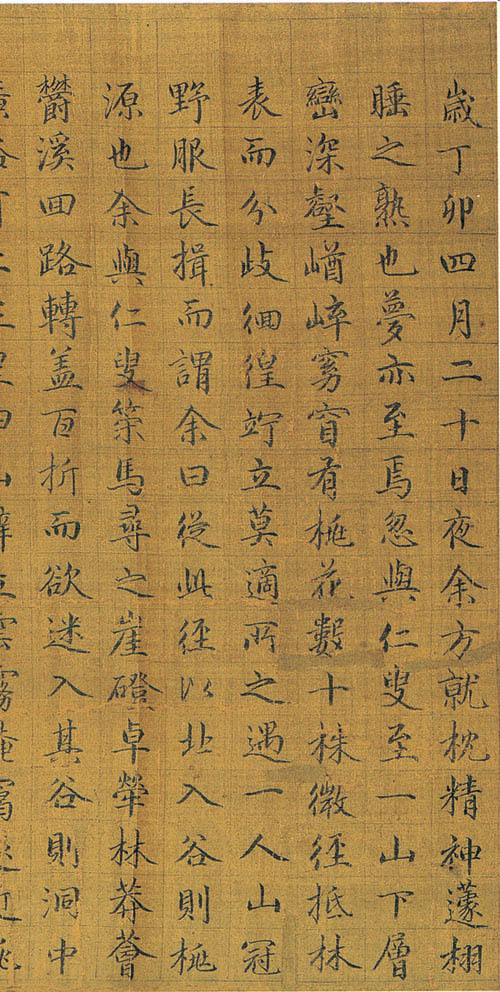 歲丁卯四月二十日夜余方就枕精神蘧栩
睡之熟也夢亦至焉忽與仁叟至一山下層
巒深壑嶆崪窈窅有桃花數十株微徑抵林
表而分歧徊徨竚立莫適所之遇一人山冠
野服長揖而謂余曰從此徑以北入谷則桃
源也余與仁叟策馬尋之崖磴卓犖林莽薈
鬱溪回路轉盖百折而欲迷入其谷則洞中
曠豁可二三里四山壁立雲霧掩靄遠近桃